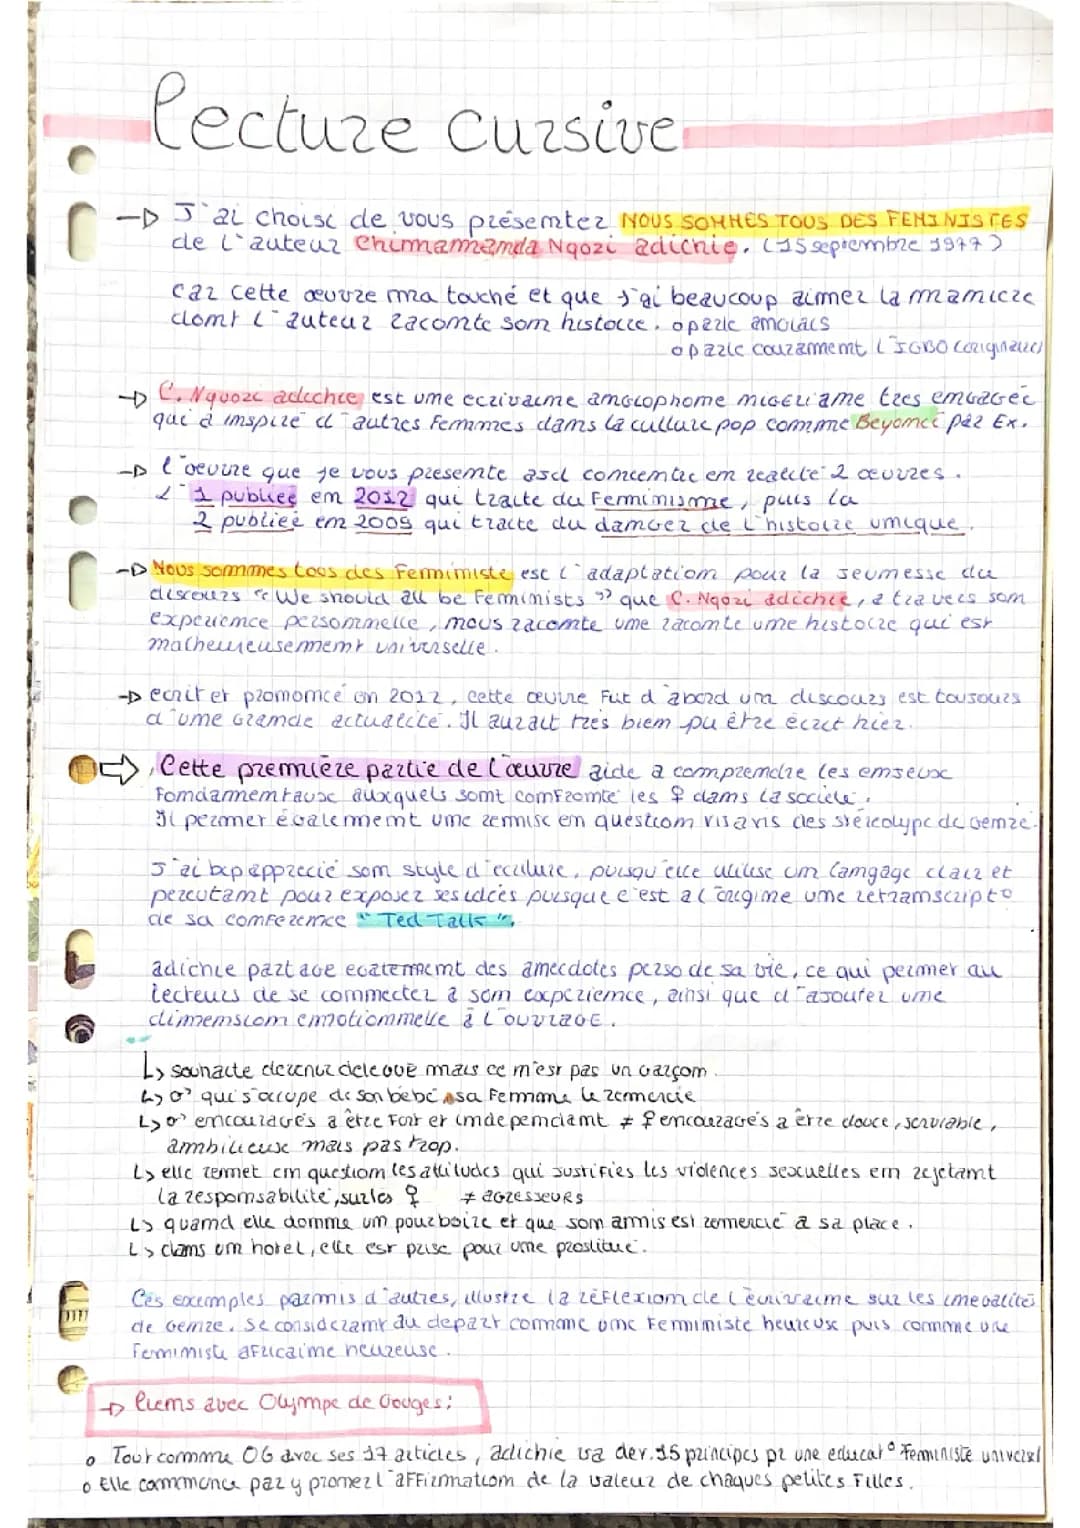 lecture cursive
→ J'ai choisi de vous présenter NOUS SOMMES TOUS DES FEMINISTES
de l'auteur Chimamamda Ngozi adichie. (15 septembre 1977)
car cette œuvre m'a touché et que j'ai beaucoup aimer la maniere
dont l'auteur raconte son histoire. o parle anglais
o parle couramment l'IGBO (originaire)
→ C. Nguozi adichie est une ecrivaine anglophone nigeriane tres engagée
qui a inspiré d'autres Femmes dans la culture pop comme Beyoncé par Ex.
→ l'oeuvre que je vous presente asd concentre en realité 2 œuvres.
L' 1 publiée en 2012 qui traite du Feminisme, puis la
2 publiéé en 2009 qui traite du danger de l'histoire unique.
→ Nous sommes tous des Feministe est l'adaptation pour la jeunesse du
discours "We should all be Feminists" que C. Ngozi adichie, a travers son
experience personnelle, nous raconte une raconte une histoire qui est
malheureusement universelle.
→ ecrit et prononcé en 2012, cette œuvre Fut d'abord un discours est toujours
d'une Grande actualité. Il aurait très bien pu être écrit hier.
⇒ Cette première partie de l'œuvre aide a comprendre les enjeux
Fondamentaux auxquels sont comFronté les ♀ dans la société.
Il permet également une remise en question vis avis des stéréotype de Genre.
J'ai bcp apprecié son style d'eculure, puisqu'elle utilise un langage clair et
percutant pour exposer ses idées puisque c'est a l'origine une retranscript°
de sa conFerence "Ted Talk".
adichie partage egatement des anecdotes perso de sa vie, ce qui permet au
lecteurs de se connecter a son experience, ainsi que d'ajouter une
dimension emotionnelle à l'ouvrage.
↳ souhaite devenir délégué mais ce n'est pas un Garçon.
↳ ♂ qui s'accupe de son bébé sa Femme le remercie
↳ ♂ encouragés a être Fort et independant ≠ ♀ encouragés a être douce, serviable,
ambitieuse mais pas trop.
↳ elle remet en question les attitudes qui justifies les violences sexuelles en rejetant
la responsabilité, sur les ♀ ≠ agresseurs
↳ quand elle donne un pourboire et que son amis est remercié a sa place.
↳ dans un hotel, elle est prise pour une prostitué.
Ces exemples parmis d'autres, illustre la réFlexion de l'écrivaine sur les inegalités
de Genre. Se considerant au depart comme une Feministe heureuse puis comme une
Feministe aFricaine heureuse.
→ liens avec Olympe de Gouges:
o Tout comme OG avec ses 17 articles, adichie va der. 15 principes pr une educat° Feministe universel
o Elle commence par y promer l'aFFirmation de la valeur de chaques petites Filles.